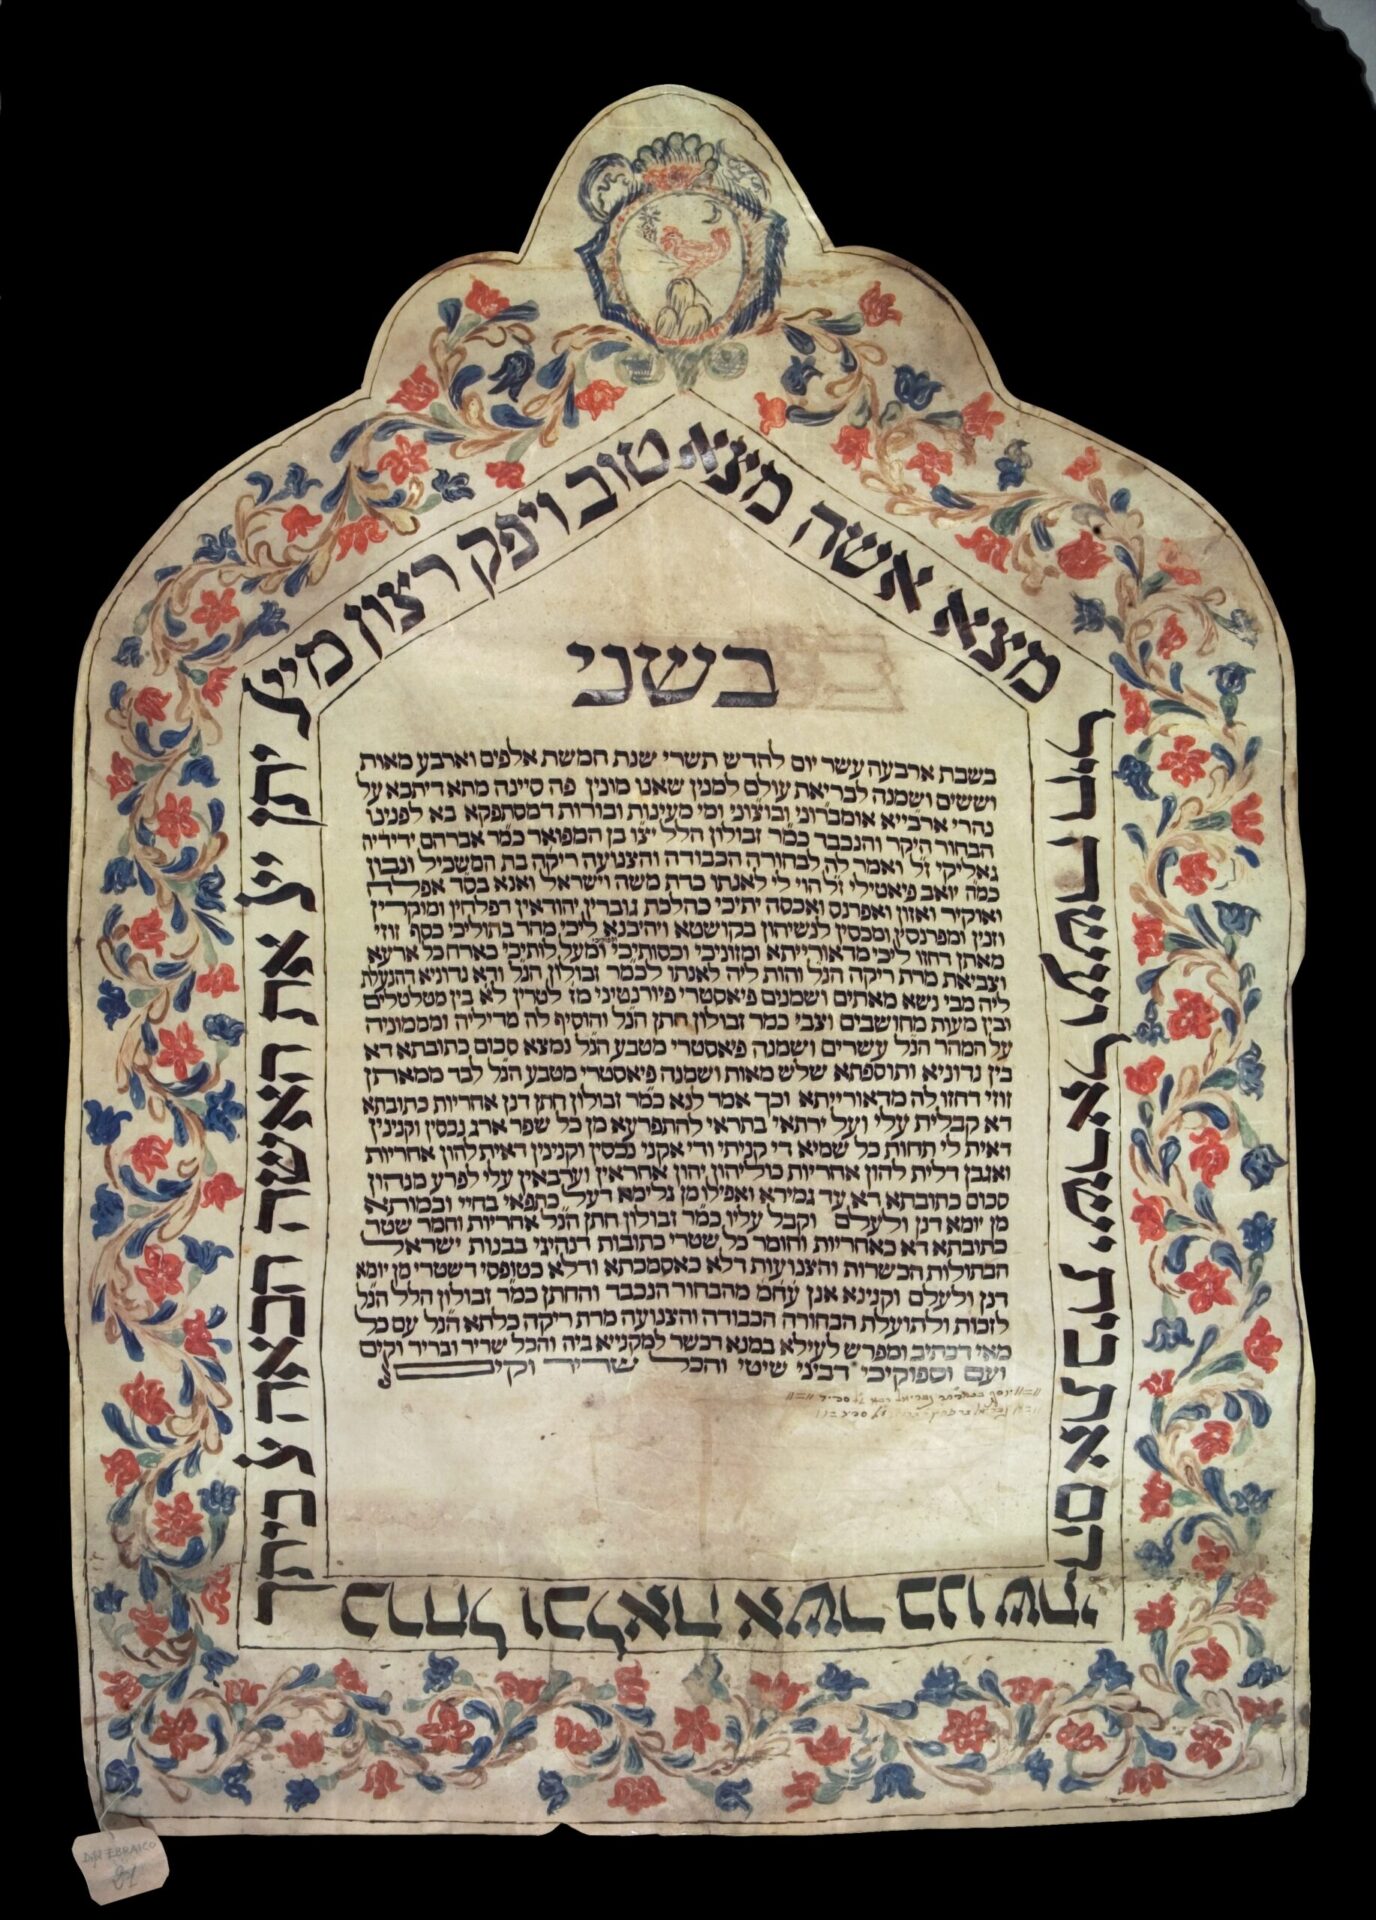 מצא אשה מצא טוב ויפק רצון מיי'
יתן יי' את האשה הבאה על ביתך
כרחל וכלאה אשר בנו שתי
הם את בית ישראל ועשה חיל
בשני
בשבת ארבעה עשר יום לחדש תשרי שנת חמשת אלפים וארבע מאות
וששים ושמנה לבריאת עולם למנין שאנו מונין פה סיינה מתא דיתבא על
נהרי ארבייא אומברוני ובוצוני ומי מעינות ובורות דמסתפקא בא לפנינו
הבחור היקר והנכבד כמ"ר זבולון הלל יצ"ו בן המפואר כמ"ר אברהם ידידיה
גאליקי ז"ל ואמר לה לבחורה הכבודה והצנועה ריקה בת המשכיל ונבון
כמ"ה יואב פיאטילי ז"ל הוי לי לאנתו כדת משה וישראל ואנא בס"ד אפלח
ואוקיר ואזון ואפרנס ואכסה יתיכי כהלכת גוברין יהודאין דפלחין ומוקרין
וזנין ומפרנסין ומכסין לנשיהון בקושטא ויהיבנא ליכי מהר בתוליכי כסף זוזי
מאתן דחזו ליכי מדאורייתא ומזוניכי וכסותיכי וסיפוקיכי ומעל לותיכי כארח כל ארעא
וצביאת מרת ריקה הנ"ל והות ליה לאנתו לכמ"ר זבולון הנ"ל ודא נדוניא דהנעלת
ליה מבי נשא מאתים ושמנים פיאסטרי פיורנטיני מז' לטרין לא' בין מטלטלים
ובין מעות מחושבים וצבי כמר זבולון חתן הנ"ל והוסיף לה מדיליה ומממוניה
על המהר הנ"ל עשרים ושמנה פיאסטרי מטבע הנ"ל נמצא סכום כתובתא דא
בין נדוניא ותוספתא שלש מאות ושמנה פיאסטרי מטבע הנ"ל לבד ממאתן
זוזי דחזו לה מדאורייתא וכך אמר לנא כמ"ר זבולון חתן דנן אחריות כתובתא
דא קבלית עלי ועל ירתאי בתראי להתפרעא מן כל שפר ארג נכסין וקנינין
דאית לי תחות כל שמיא די קניתי ודי אקני נכסין וקנינין דאית להון אחריות
ואגבן דלית להון אחריות כוליהון יהון אחראין וערבאין עלי לפרע מנהון
סכום כתובתא דא עד גמירא ואפילו מן גלימא דעל כתפאי בחיי ובמותא
מן יומא דנן ולעלם וקבל עליו כמ"ר זבולון חתן הנ"ל אחריות וחמר שטר
כתובתא דא כאחריות וחומר כל שטרי כתובות דנהיגי בבנות ישראל
הבתולות הכשרות והצנועות דלא כאסמכתא ודלא כטופסי דשטרי מן יומא
דנן ולעלם וקנינא אנן עחמ מהבחור הנכבד והחתן כמ"ר זבולון הלל הנ"ל
לזכות ולתועלת הבחורה הכבודה והצנועה מרת ריקה כלתא הנ"ל עם כל
מאי דכתיב ומפרש לעילא במנא דכשר למקנייא ביה והכל שריר ובריר וקים
ועם וספוקיכי דביני שיטי והכל שריר וקים
EBRAICO
21